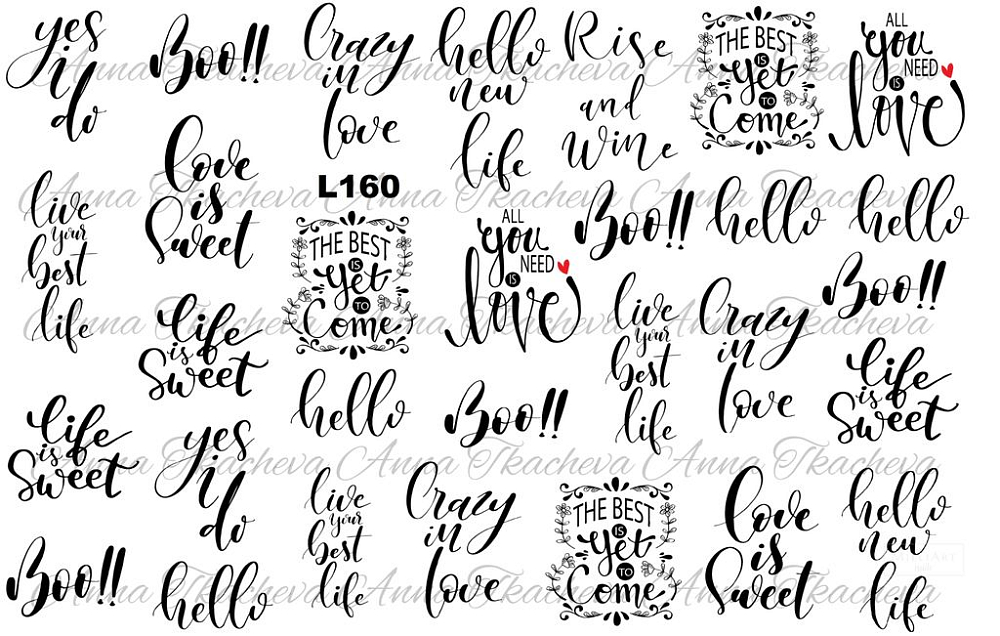 yes
i
do
Boo!!
Crazy
in
love
hello
new
life
Rise
and
Wine
THE BEST
IS
yet
TO
Come
ALL
you
NEED
IS
love
Anna Tkacheva Anna Tkacheva Anna Tkacheva
live
your
best
life
love
is
Sweet
L160
THE BEST
IS
yet
TO
Come
ALL
you
NEED
IS
love
Boo!!
hello
hello
Anna Tkacheva Anna Tkacheva Anna Tkacheva
life
is
Sweet
live
your
best
life
Crazy
in
love
Boo!!
Anna Tkacheva Anna Tkacheva Anna Tkacheva
hello
Boo!!
life
is
Sweet
life
is
Sweet
yes
i
do
Anna Tkacheva Anna Tkacheva Anna Tkacheva
live
your
best
life
Crazy
in
love
THE BEST
IS
yet
TO
Come
love
is
Sweet
hello
new
life
Boo!!
hello
Anna Tkacheva Anna Tkacheva Anna Tkacheva